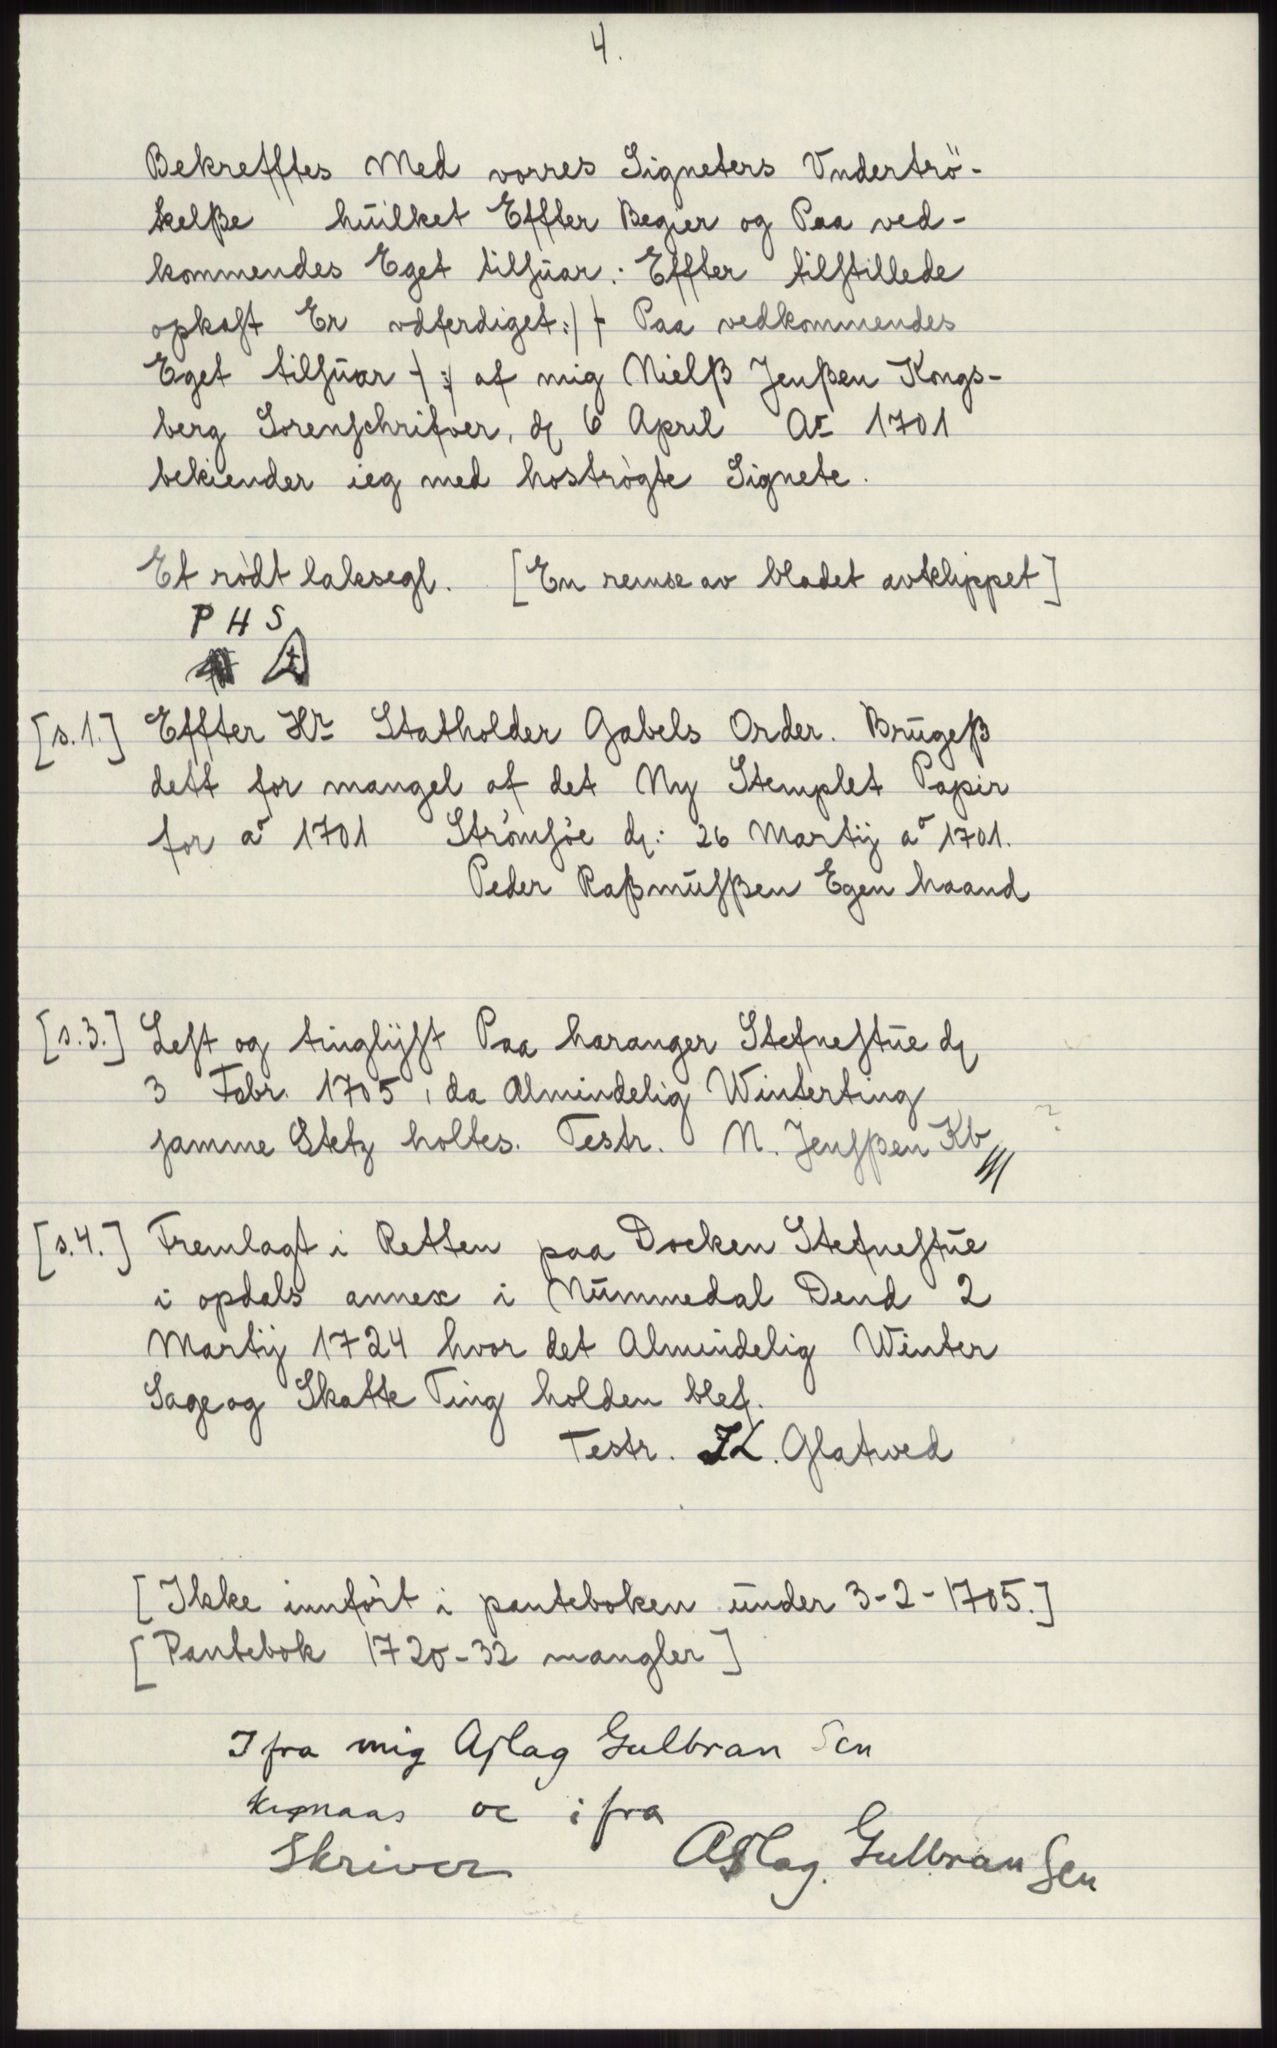 4.
Bekrefftes Med vorres Signeters Vndertrö-
kelße huilket Effter Begier og Paa ved-
kommendes Eget tilsuar: Effter tilstillede
opkast Er vdferdiget:/ Paa vedkommendes
Eget tilsuar :/ af mig Nielß Jenßen Kongs-
berg Sorenschrifver, d 6 April Ao 1701
bekiender ieg med hostrògte Signete.
Et rödt laksegl. [En remse av bladet avklippet]
P H S
[s.1.] Effter Hr Statholder Gabels Order. Brugeß
dett for mangel af det Ny Stemplet Papir
for ao 1701 Strömsöe d: 26 Martij ao 1701.
Peder Raßmusßen Egen haand
[s.3.] Lest og tinglÿst Paa haranger Stefnestue d
3 Febr. 1705, da Almindelig Winterting
samme Stetz holtes. Testr. N. Jensßen Kb
?
[s.4.] Fremlagt i Retten paa Docken Stefnestue
i opdals annex i Nummedal Dend 2
Martij 1724 hvor det Almindelig Winter
Sage og Skatte Ting holden blef.
Testr. JL. Glatved
[Ikke innført i panteboken under 3-2-1705.]
[Pantebok 1720-32 mangler]
I fra mig Aslag Gulbran Sen
oc i fra
Skriver Aslag. Gulbran Sen